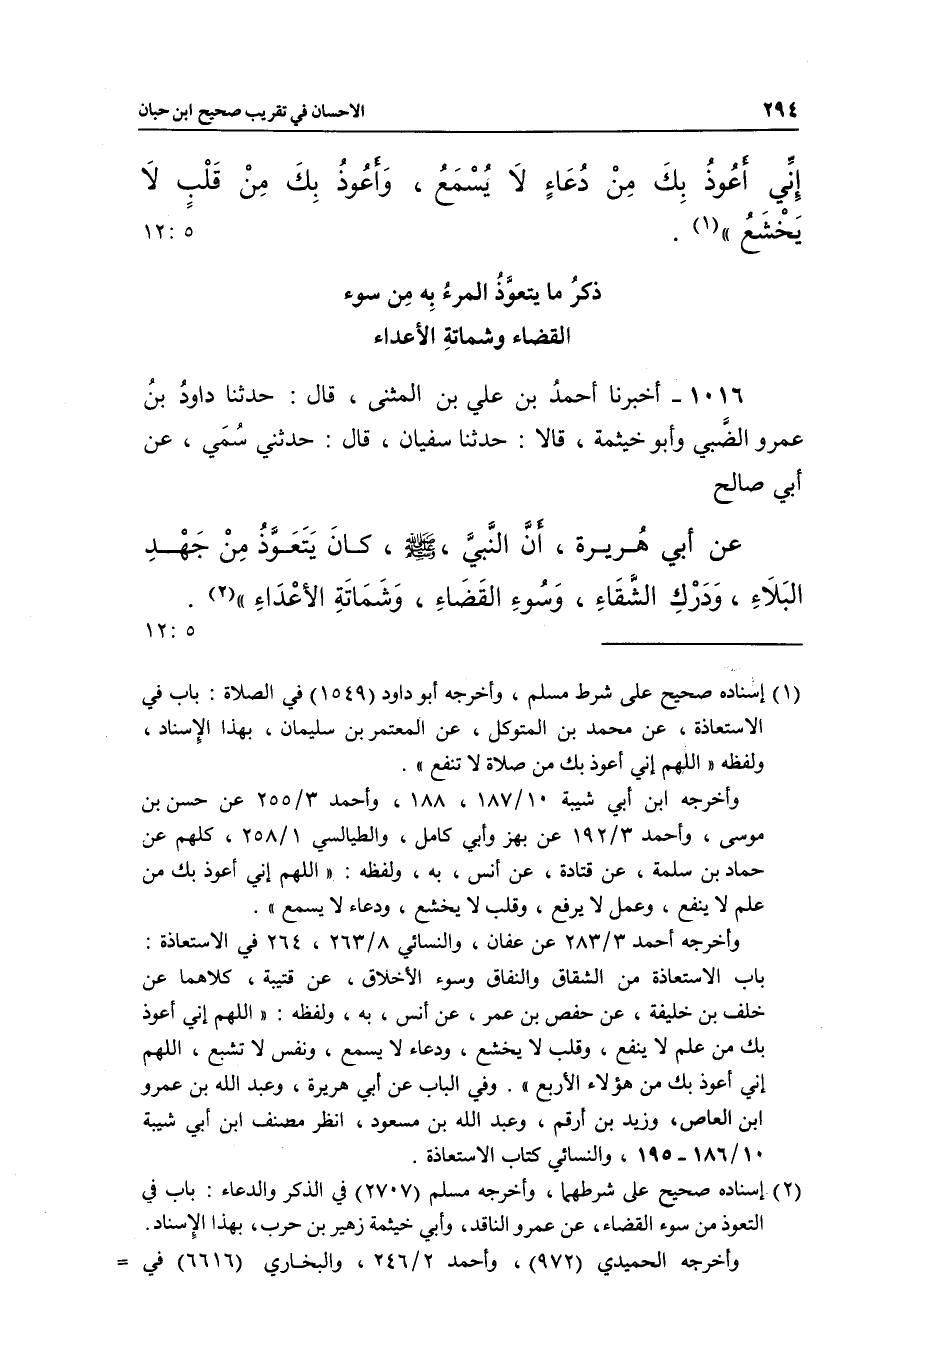 ٢٩٤ الاحسان في تقريب صحيح ابن حبان
إِنِّي أَعُوذُ بِكَ مِنْ دُعَاءٍ لَا يُسْمَعُ ، وَأَعُوذُ بِكَ مِنْ قَلْبٍ لَا
يَخْشَعُ »(١) . ٥ :١٢
ذكرُ ما يتعوَّذُ المرءُ بِه مِن سوء
القضاء وشماتةِ الأعداء
١٠١٦ ـ أخبرنا أحمدُ بن علي بن المثنى ، قال : حدثنا داودُ بنُ
عمرو الضَّبي وأبو خيثمة ، قالا : حدثنا سفيان ، قال : حدثني سُمَي ، عن
أبي صالح
عن أبي هُـريـرة ، أَنَّ النَّبيَّ ، ﷺ ، كـانَ يَتَعَـوَّذُ مِنْ جَهْـدِ
البَلَاءِ ، وَدَرْكِ الشَّقَاءِ ، وَسُوءِ القَضَاءِ ، وَشَمَاتَةِ الأعْدَاءِ »(٢) .
٥ :١٢
(١) إسناده صحيح على شرط مسلم ، وأخرجه أبو داود (١٥٤٩) في الصلاة : باب في
الاستعاذة ، عن محمد بن المتوكل ، عن المعتمر بن سليمان ، بهذا الإسناد ،
ولفظه « اللهم إني أعوذ بك من صلاة لا تنفع » .
وأخرجه ابن أبي شيبة ١٨٧/١٠ ، ١٨٨ ، وأحمد ٢٥٥/٣ عن حسن بن
موسى ، وأحمد ١٩٢/٣ عن بهز وأبي كامل ، والطيالسي ٢٥٨/١ ، كلهم عن
حماد بن سلمة ، عن قتادة ، عن أنس ، به ، ولفظه : « اللهم إني أعوذ بك من
علم لا ينفع ، وعمل لا يرفع ، وقلب لا يخشع ، ودعاء لا يسمع » .
وأخرجه أحمد ٢٨٣/٣ عن عفان ، والنسائي ٢٦٣/٨ ، ٢٦٤ في الاستعاذة :
باب الاستعاذة من الشقاق والنفاق وسوء الأخلاق ، عن قتيبة ، كلاهما عن
خلف بن خليفة ، عن حفص بن عمر ، عن أنس ، به ، ولفظه : « اللهم إني أعوذ
بك من علم لا ينفع ، وقلب لا يخشع ، ودعاء لا يسمع ، ونفس لا تشبع ، اللهم
إني أعوذ بك من هؤلاء الأربع » . وفي الباب عن أبي هريرة ، وعبد الله بن عمرو
ابن العاص، وزيد بن أرقم ، وعبد الله بن مسعود ، انظر مصنف ابن أبي شيبة
١٨٦/١٠ ـ ١٩٥ ، والنسائي كتاب الاستعاذة .
(٢) إسناده صحيح على شرطهما ، وأخرجه مسلم (٢٧٠٧) في الذكر والدعاء : باب في
التعوذ من سوء القضاء، عن عمرو الناقد، وأبي خيثمة زهير بن حرب، بهذا الإسناد .
وأخرجه الحميدي (٩٧٢) ، وأحمد ٢٤٦/٢ ، والبخـاري (٦٦١٦) في =